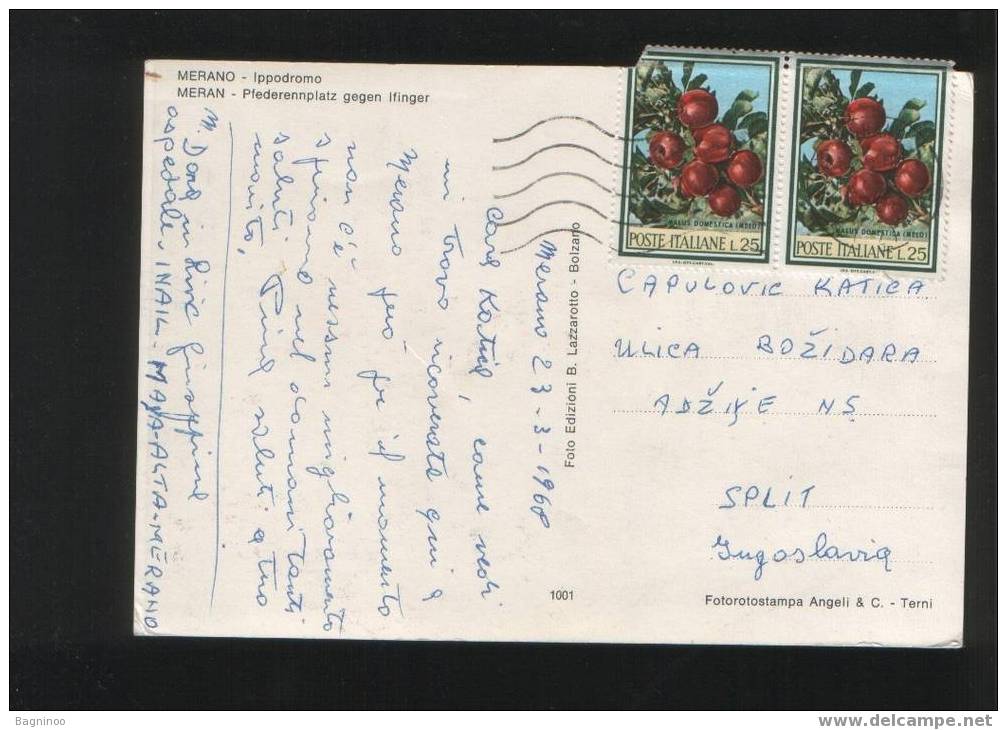 MERANO - Ippodromo
MERAN - Pfederennplatz gegen Ifinger
Merano 23-3-1968
Cara Katica, come vedi
mi trovo ricoverata qui a
Merano però per il momento
non c'è nessun miglioramento
speriamo nel domani tanti
saluti
saluti a tuo
marito,
ospedale INAIL - MAJA-ALTA-MERANO
Foto Edizioni B. Lazzarotto - Bolzano
1001
MALUS DOMESTICA (MELO)
POSTE ITALIANE L.25
MALUS DOMESTICA (MELO)
POSTE ITALIANE L.25
CAPULOVIC KATICA
ULICA BOŽIDARA
ADŽIJE N5
SPLIT
Jugoslavia
Fotorotostampa Angeli & C. - Terni
Bagninoo
www.delcampe.net